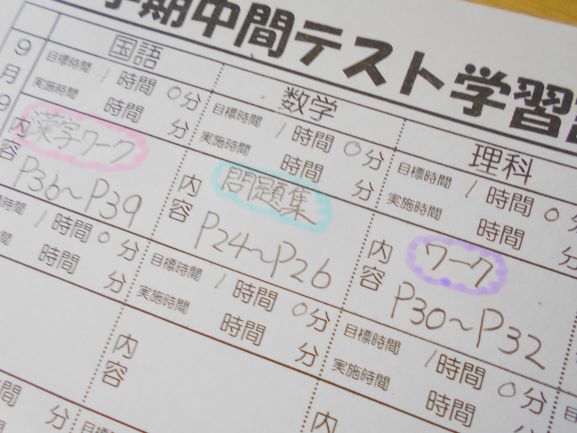 学期中間テスト学習
国語
数学
理科
9月9
目標時間 1時間 0分
実施時間 時間 分
内容
漢字ワーク
P36〜P39
目標時間 1時間 0分
実施時間 時間 分
内容
問題集
P24〜P26
目標時間 1時間 0
実施時間 時間
内容
ワーク
P30〜P32
1時間 0分
時間 分
内容
目標時間 1時間 0分
実施時間 時間 分
内
目標時間 1時間 0分
実施時間 時間
分